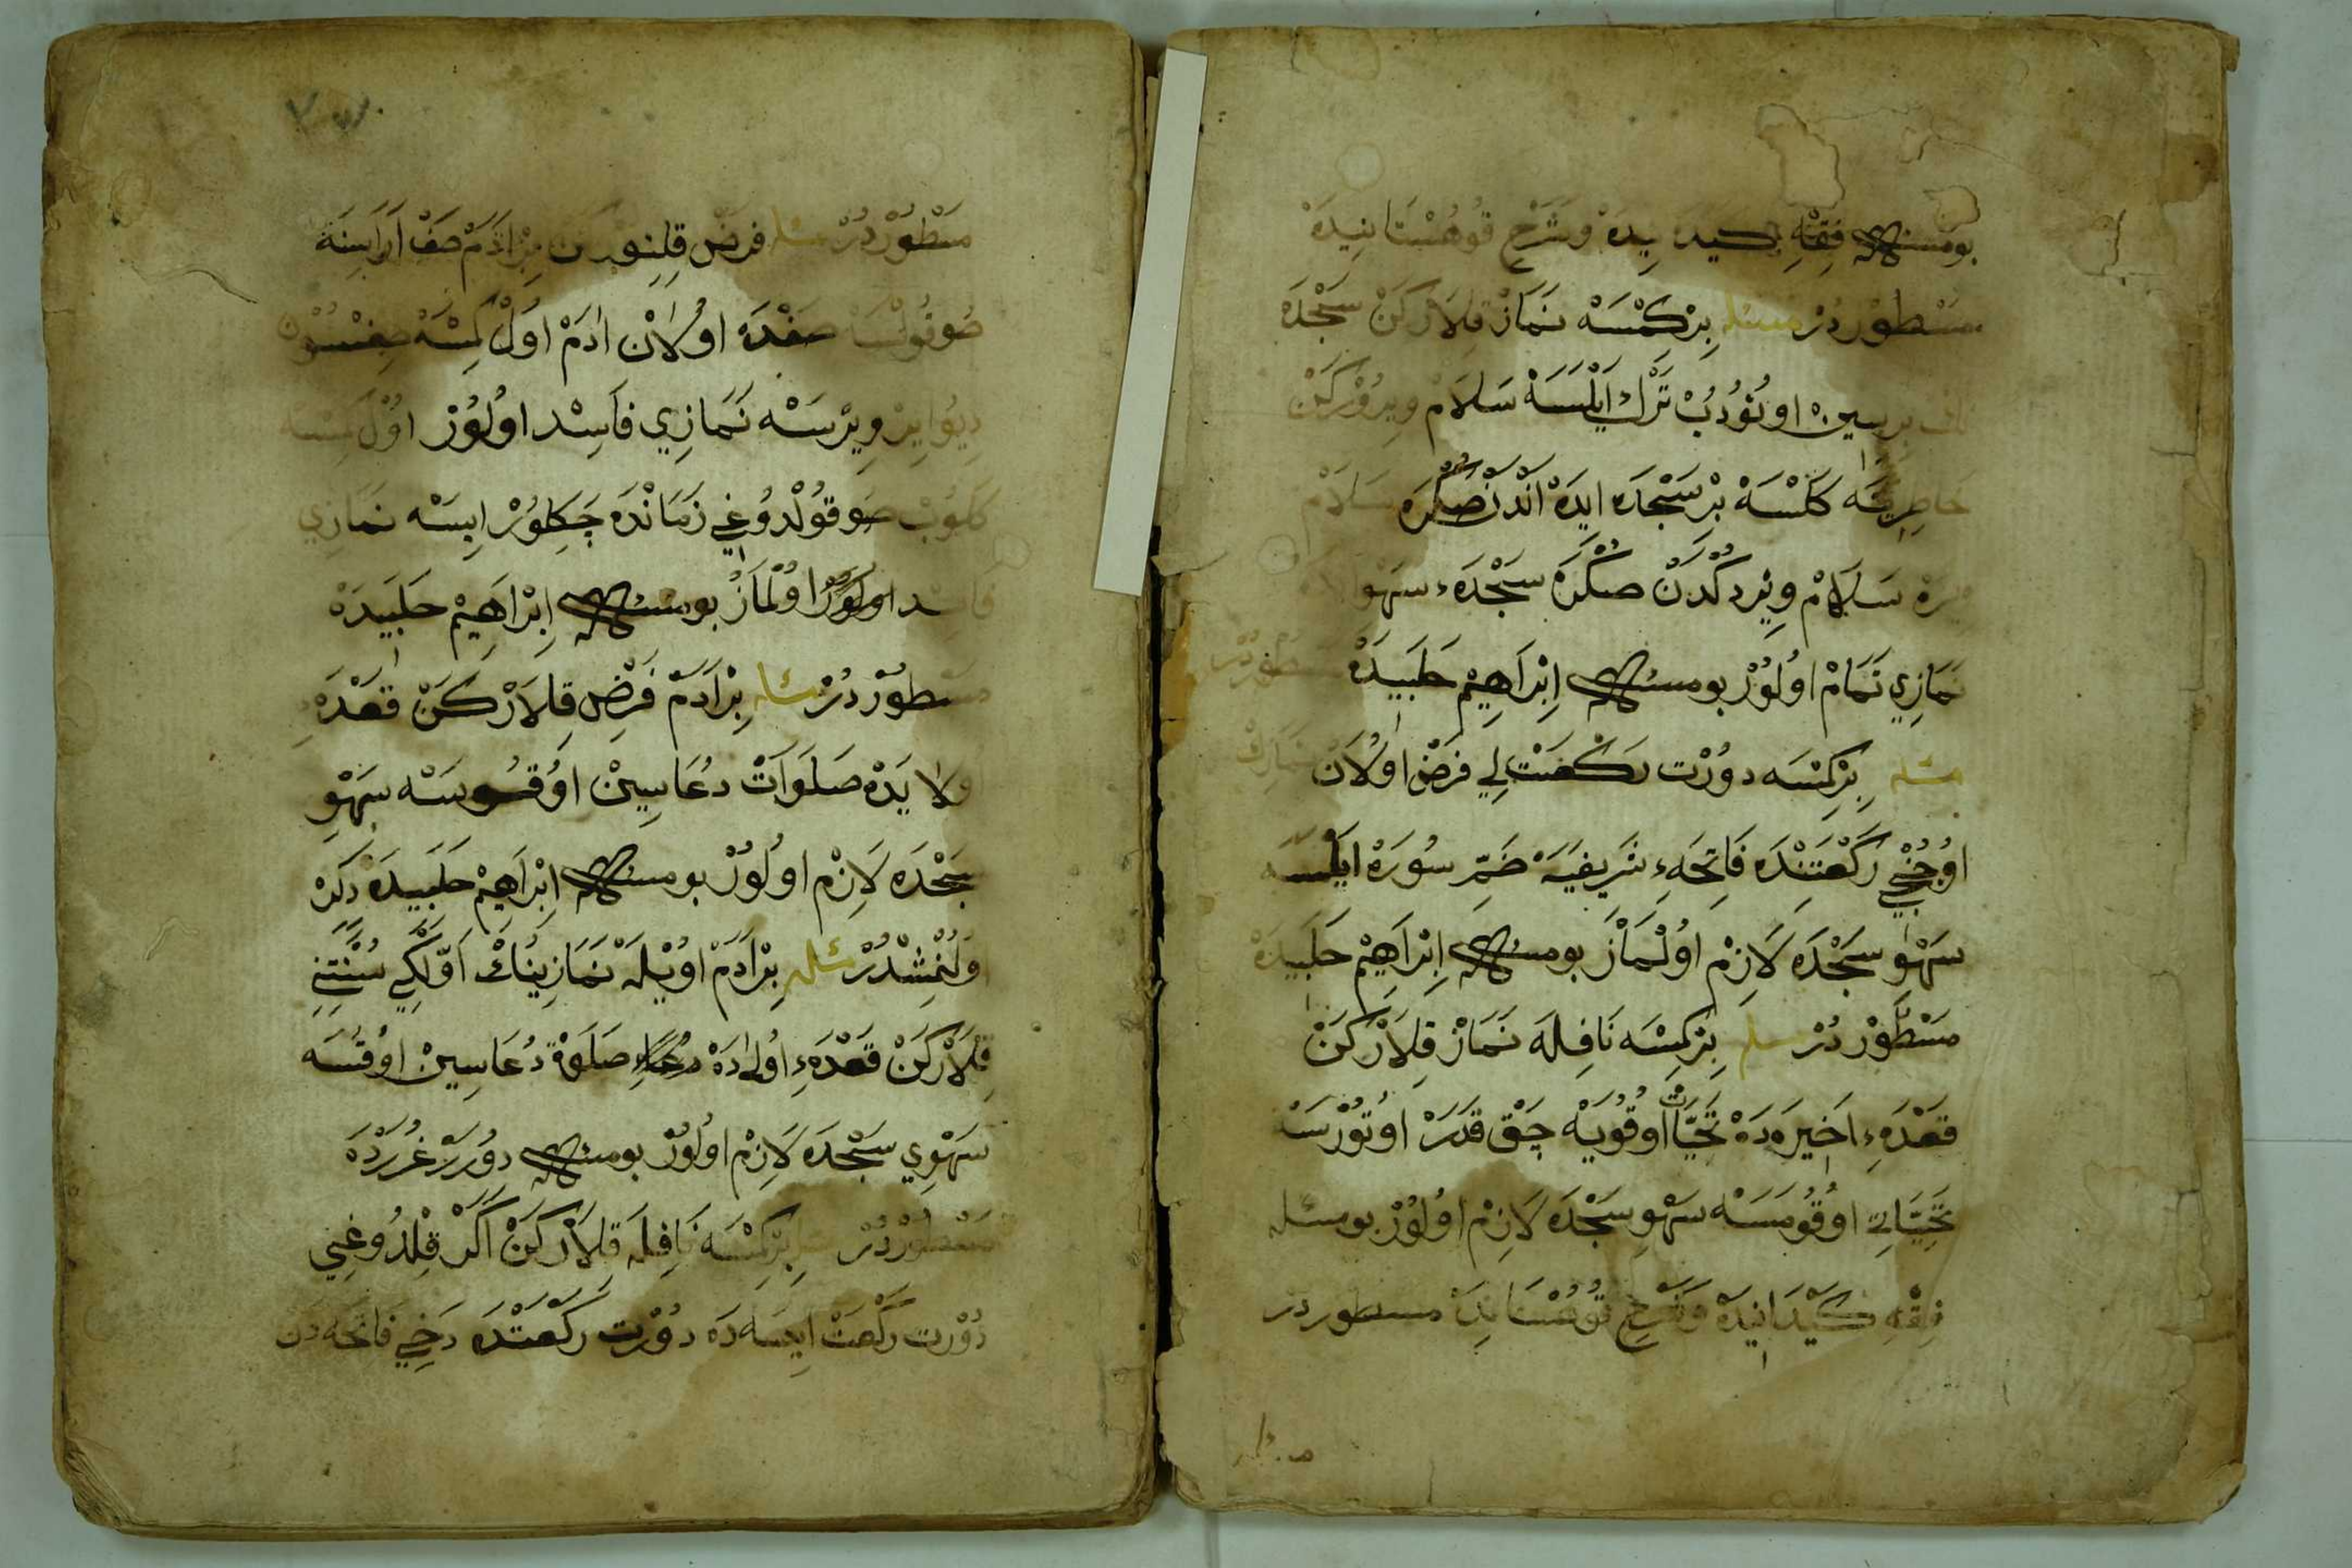 بومسئله فِقْهِ كيدانيده وَشَرْحِ قُوهُسْتَانِيدَهْ
مَسْطُورْدُرْ مسئله بِرْكِمْسَهْ نَمَازْ قِلَارْكَنْ سَجْدَهْ
بريسين اونُودُبْ تَرْكْ اَيْلَسَهْ سَلَامْ وِيرُورْكَنْ
خاطِرِينَه كَلْسَهْ بِرْ سَجْدَه ايدَهْ اَنْدَنْ صُكْرَه سَلَامْ
ويره سَلَامْ وِيرْدكْدَنْ صُكْرَهْ سَجْدَهءِ سَهْو
نَمَازِي تَمَامْ اوُلُورْ بومسئله اِبْرَاهِيمْ حَلَبِيدَهْ مسطوردر
مسئله بِرْكِمْسَه دوُرْت رَكْعَتْلِي فَرْضْ اوُلَانْ نمازك
اوُجُنْجِي رَكْعَتِنْدَه فَاتِحَهءِ شَرِيفَيَهْ ضَمِّ سُورَهْ ايلسه
سَهْوِ سَجْدَه لَازِمْ اوُلْمَازْ بومسئله اِبْرَاهِيمْ حَلَبِيدَهْ
مَسْطُورْدُرْ مسئله بِرْكِمْسَه نَافِلَه نَمَازْ قِلَارْكَنْ
قَعْدَهءِ اَخِيرَهدَهْ تَحِيَّاتْ اوُقُويَهْجَقْ قَدَرْ اوُتُورْسَه
تَحِيَّاتِي اوُقُومَسَهْ سَهْوِ سَجْدَه لَازِمْ اوُلُورْ بومسئله
فِقْهِ كَيْدَانِيدَهْ وَشَرْحِ قُوهُسْتَانِيدَهْ مسطوردر
مَسْطُورْدُرْ مسئله فَرْضْ قِلِنُورْكَن بِرْاَدَمْ صَفْ اَرَاسِنَهْ
صُوقُولْسَهْ صَفْدَه اوُلَانْ ادَمْ اوُلْ كِمْسَهْ صِغِنْسُونْ
دِيُو اير وِيرْسَهْ نَمَازِي فَاسِدْ اوُلُورْ اوُلْ كِمْسَه
كَلُوبْ صُوقُولْدُوغِي زَمَانْدَه چَكِلُورْ ايسَهْ نَمَازِي
فاسِد اوُلْمَازْ بومسئله اِبْرَاهِيمْ حَلَبِيدَهْ
مَسْطُورْدُرْ مسئله بِرْاَدَمْ فَرْضْ قِلَارْكَنْ قَعْدَهءِ
اولايَدَهْ صَلَوَاتْ دُعَاسِينْ اوُقُوسَهْ سَهْوِ
سَجْدَه لَازِمْ اوُلُورْ بومسئله اِبْرَاهِيمْ حَلَبِيدَهْ ذِكِرْ
اوُلُنْمِشْدُرْ مسئله بِرْاَدَمْ اوُيْلَهْ نَمَازِينُكْ اَوَّلْكِي سُنَّتِنِي
قِلَارْكَنْ قَعْدَهءِ اوُلَادَهْ صَلَوةْ دُعَاسِينْ اوُقُسَه
سَهْوِي سَجْدَه لَازِمْ اوُلُورْ بومسئله دُورَرْ غُرَرْدَهْ
مَسْطُورْدُرْ مسئله بِرْكِمْسَه نَافِلَه قِلَارْكَنْ اَكَرْ قِلْدُوغِنِي
دُوْرت رَكْعَتْ ايسَه دَه دوُرْت رَكْعَتْدَه دَخِي فَاتحَه دَن